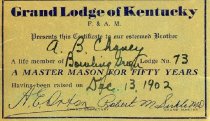 Grand Lodge of Kentucky
F. & A. M.
Presents this Certificate to our esteemed Brother
A. B. Chaney
A life member of Bowling Green Lodge No. 73
A MASTER MASON FOR FIFTY YEARS
Having been raised on Dec. 13, 1902